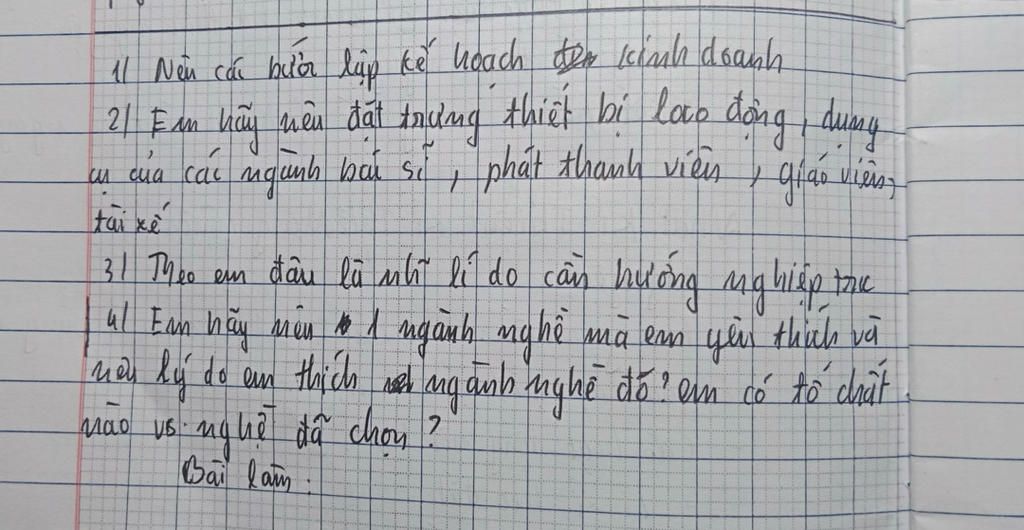 1) Nêu các bước lập kế hoạch kinh doanh
2) Em hãy nêu đặt trưng thiết bị lao động, dụng
cụ của các ngành bác sĩ, phát thanh viên, giáo viên,
tài xế
3) Theo em đâu là nh~ lí do cần hướng nghiệp trc
4) Em hãy nêu 1 ngành nghề mà em yêu thích và
nêu lý do em thích ngành nghề đó? em có tố chất
nào vs nghề đã chọn?
Bài làm: